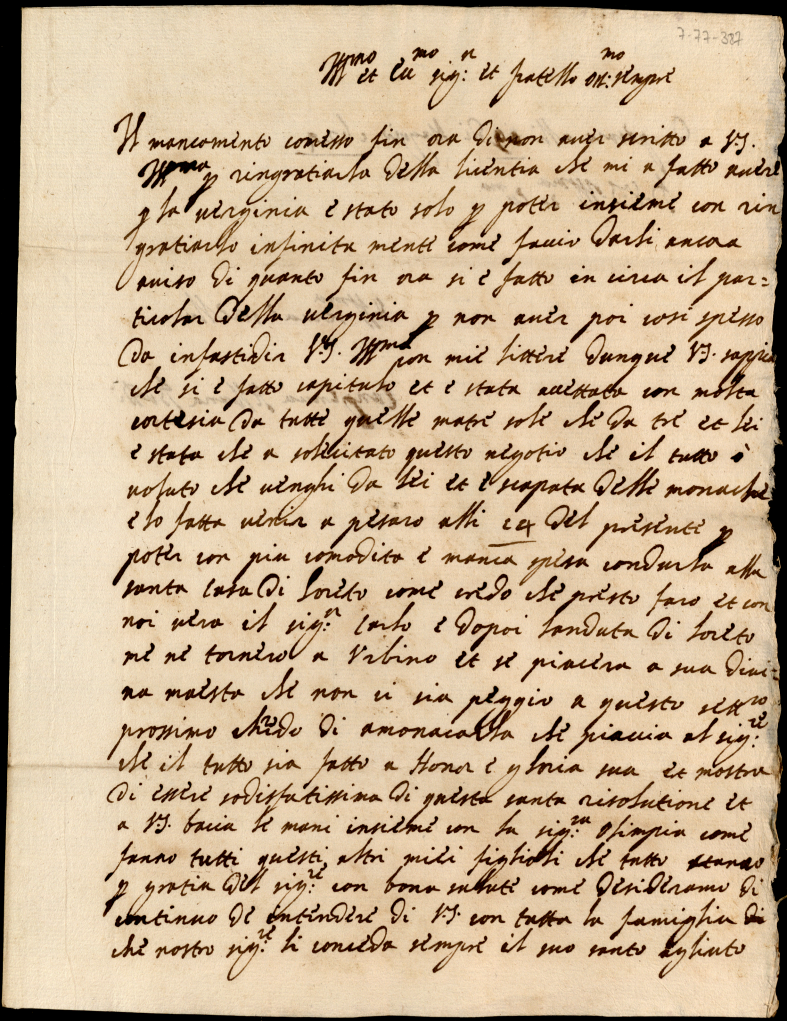 7-77-387
Ill^mo et Ecc^mo sig^r: et fratello oss:^mo sempre
Il mancamento comesso fin ora di non aver scritto a V.S.
Ill^ma p ringratiarla della licentia che mi a fatto avere
p la verginia e stato solo p poter insieme con rin
gratiarlo infinita mente come facio darli ancora
aviso di quanto fin ora si e fatto in circa il par=
ticolar della verginia p non aver poi cosi spesso
da infastidir V.S. Ill^ma con mie littere dunque V.S. sappia
che si e fatto capitulo et e stata accettata con molta
cortesia da tutte quelle matre sole che da tre et lei
e stata che a solecitato questo negotio che il tutto è
voluto che venghi da lei et e scapata delle monache
e lo fatta venir a pesaro alli del presente p
poter con piu comodita e manca spesa condurla alla
santa casa di loreto come credo che presto faro et con
noi vera il sig^r: Carlo e dopoi landata di loreto
me ne tornero a Urbino et se piacera a sua divi=
na maesta che non ci sia peggio a questo sett^ro
prossimo chredo di amonacalla che piaccia al sig^re:
che il tutto sia fatto a Honor e gloria sua et mostra
di essere sodisfatissima di questa santa risolutione et
a V.S. bacia le mani insieme con la sig^ra: Olimpia come
fanno tutti questi altri miei figlioli che tutto stanno
p gratia del sig^re: con bona salute come desideramo di
continuo de intendere di V.S. con tutta la famiglia di
che nostro sig^re: li conceda sempre il suo santo agliuto